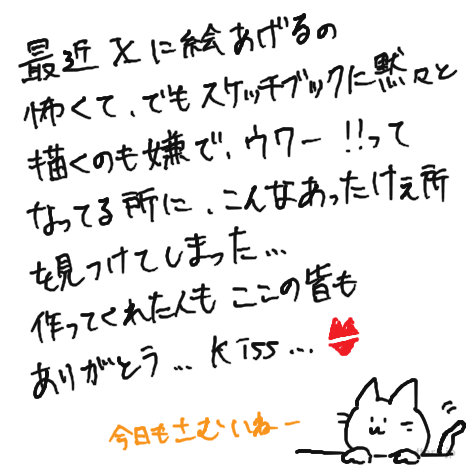 最近Xに絵あげるの
怖くて、でもスケッチブックに黙々と
描くのも嫌で、ウワー!!って
なってる所に、こんなあったけぇ所
を見つけてしまった…
作ってくれた人もここの皆も
ありがとう…kiss…
今日もさむいねー